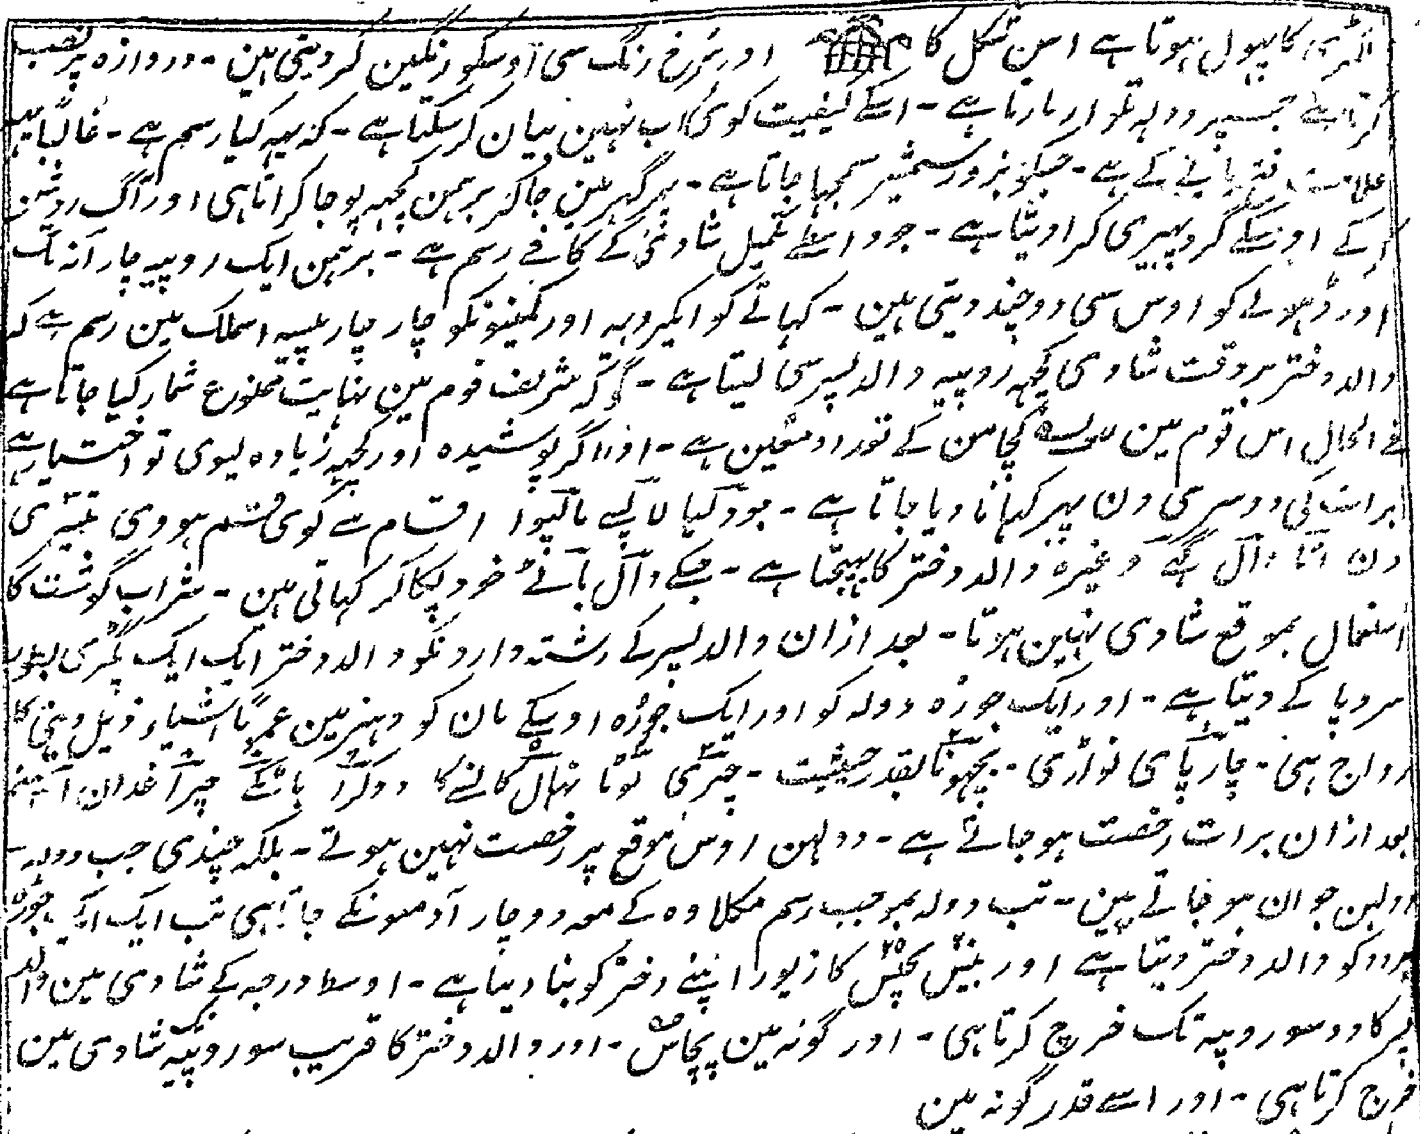 لکڑی کا پہول ہوتا ہے اس شکل کا اور سُرخ رنگ سی اوسکو رنگین کر دیتی ہین - دروازہ پر نصب
کرتا ہے جسپر دولہ تلوار مارتا ہے - اسکے کیفیت کوئی اب نہین بیان کر سکتا ہے - کہ یہہ کیا رسم ہے - غالباً یہہ
علامت فتحیابی کے ہے - جسکو بزور شمشیر سمجہا جاتا ہے - پہر گہر مین جاکر برہمن کچہہ پوجا کراتا ہی اور آگ روشن
کرکے اوسکے گرد پہیری کرا دیتا ہے - جو واسطے تکمیل شادی کے کافے رسم ہے - برہمن ایک روپیہ چار آنہ تک
اور ڈہولے کو اوس سی دوچند دیتی ہین - کہاتے کو ایکروپیہ اور کمینونکو چار چار پیسہ اسملک مین رسم ہے کہ
والد دختر بر وقت شادی کچہہ روپیہ والد پسر سی لیتا ہے - گو کہ شریف قوم مین نہایت ممنوع شمار کیا جاتا ہے
فے الحال اس قوم مین پچاس کے تعداد معین ہے - اور اگر پوشیدہ اور کچہہ زیادہ لیوی تو اختیار ہے
برات کی دوسری دن پہر کہانا دیا جاتا ہے - جو اقسام سے کوئی قسم ہووی تیسری
دن آٹا دال گہی وغیرہ والد دختر کا بہیجتا ہے - جسکے وہ خود پکا کر کہاتی ہین - شراب گوشت کا
استعمال بموقع شادی نہین ہوتا - بعد ازان والد پسر کے رشتہ دارونکو والد دختر ایک ایک پگڑی بطور
سروپا کے دیتا ہے - اور ایک جوڑہ دولہ کو اور ایک جوڑہ اوسکے مان کو دہیز مین عموماً اشیاء ذیل دینی کا
رواج ہی - چارپائی نواڑی - بچہونا بقدر حیثیت - لوٹا تہال
بعد ازان برات رخصت ہو جاتے ہے - دولہن اوس موقع پر رخصت نہین ہوتے - بلکہ چندی جب دولہ
دولہن جوان ہو جاتے ہین - تب دولہ بموجب رسم مکلاوہ کے معہ دو چار آدمیونکے جاتا ہی تب ایک ایک جوڑہ
ہردو کو والد دختر دیتا ہے اور بیس پچیس کا زیور اپنے دختر کو بنا دیتا ہے - اوسط درجہ کے شادی مین والد
پسر کا دو سو روپیہ تک خرچ کرتا ہی - اور گونہ مین پچاس - اور والد دختر کا قریب سو روپیہ تک شادی مین
خرچ کرتا ہی - اور اسے قدر گونہ مین